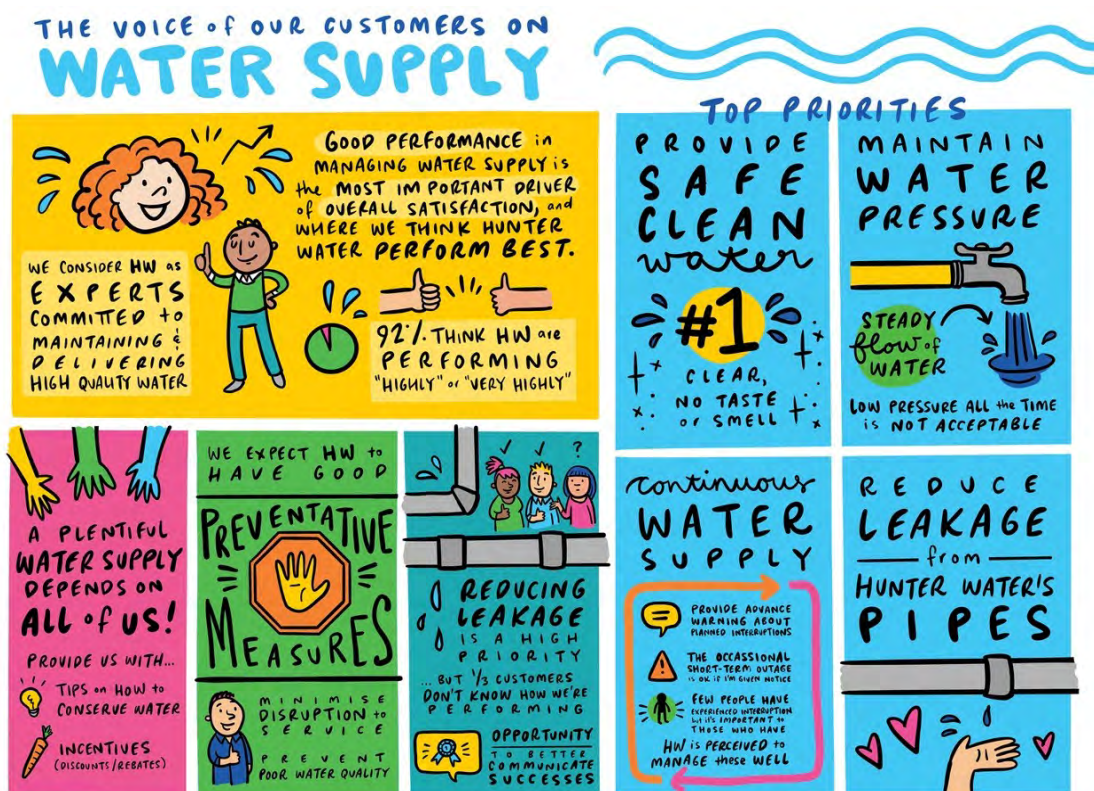 THE VOICE of OUR CUSTOMERS ON
WATER SUPPLY
GOOD PERFORMANCE in
MANAGING WATER SUPPLY is
the MOST IMPORTANT DRIVER
of OVERALL SATISFACTION, and
WHERE WE THINK HUNTER
WATER PERFORM BEST.
WE CONSIDER HW as
EXPERTS
COMMITTED to
MAINTAINING &
DELIVERING
HIGH QUALITY WATER
92% THINK HW are
PERFORMING
"HIGHLY" or "VERY HIGHLY"
A PLENTIFUL
WATER SUPPLY
DEPENDS ON
ALL of US!
PROVIDE US WITH...
TIPS on HOW to
CONSERVE WATER
INCENTIVES
(DISCOUNTS/REBATES)
WE EXPECT HW to
HAVE GOOD
PREVENTATIVE
MEASURES
MINIMISE
DISRUPTION to
SERVICE
PREVENT
POOR WATER QUALITY
?
REDUCING
LEAKAGE
IS A HIGH
PRIORITY
...BUT 1/3 CUSTOMERS
DON'T KNOW HOW WE'RE
PERFORMING
OPPORTUNITY
TO BETTER
COMMUNICATE
SUCCESSES
TOP PRIORITIES
PROVIDE
SAFE
CLEAN
water
#1
CLEAR,
NO TASTE
or SMELL
MAINTAIN
WATER
PRESSURE
STEADY
flow of
WATER
LOW PRESSURE ALL the TIME
is NOT ACCEPTABLE
continuous
WATER
SUPPLY
PROVIDE ADVANCE
WARNING ABOUT
PLANNED INTERRUPTIONS
THE OCCASSIONAL
SHORT-TERM OUTAGE
is OK if I'M GIVEN NOTICE
FEW PEOPLE HAVE
EXPERIENCED INTERRUPTION
but it's IMPORTANT to
THOSE WHO HAVE
HW is PERCEIVED to
MANAGE these WELL
REDUCE
LEAKAGE
from
HUNTER WATER'S
PIPES